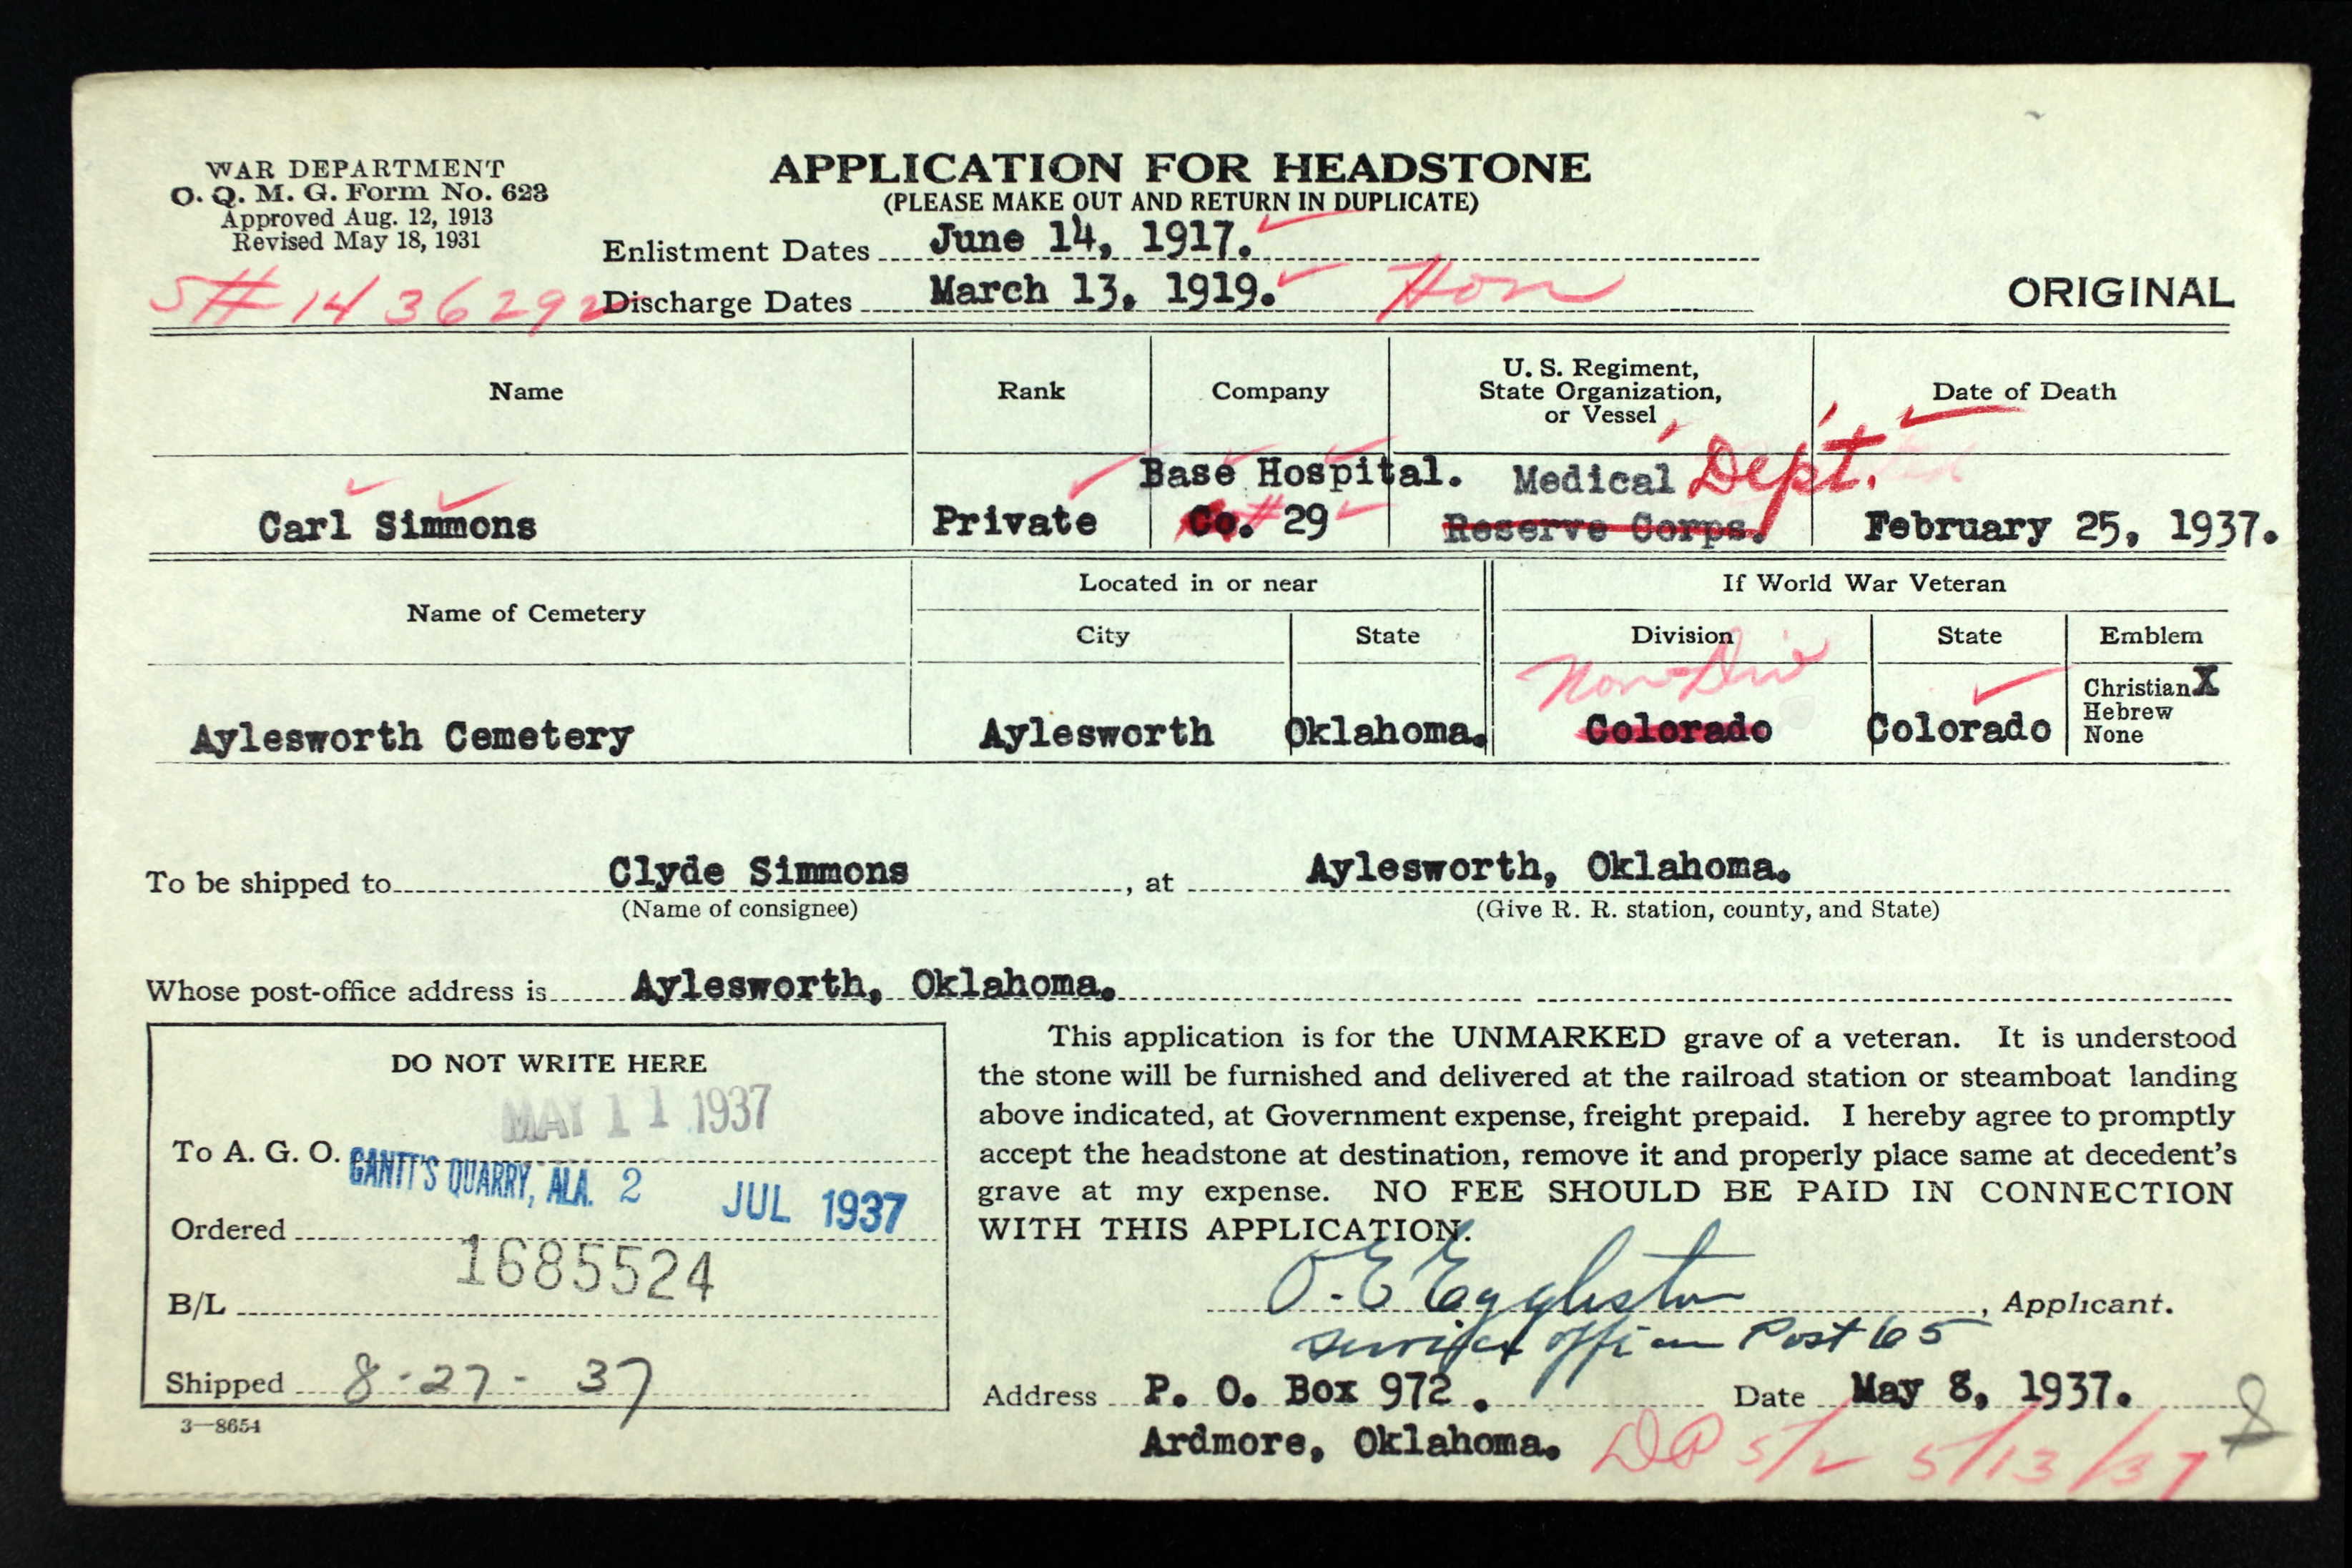 WAR DEPARTMENT
O. Q. M. G. Form No. 623
Approved Aug. 12, 1913
Revised May 18, 1931
APPLICATION FOR HEADSTONE
(PLEASE MAKE OUT AND RETURN IN DUPLICATE)
Enlistment Dates June 14, 1917.
S# 1436292 Discharge Dates March 13, 1919. Hon
ORIGINAL
Name Rank Company U. S. Regiment, State Organization, or Vessel Date of Death
Base Hospital. Medical Dept.
Carl Simmons Private Co. # 29 Reserve Corps. February 25, 1937.
Name of Cemetery Located in or near If World War Veteran
City State Division State Emblem
Non-Div
Christian X
Hebrew
None
Aylesworth Cemetery Aylesworth Oklahoma. Colorado Colorado
To be shipped to Clyde Simmons, at Aylesworth, Oklahoma.
(Name of consignee) (Give R. R. station, county, and State)
Whose post-office address is Aylesworth, Oklahoma.
DO NOT WRITE HERE
MAY 11 1937
To A. G. O.
GANTT'S QUARRY, ALA. 2 JUL 1937
Ordered
1685524
B/L
Shipped 8-27-37
3—8654
This application is for the UNMARKED grave of a veteran. It is understood
the stone will be furnished and delivered at the railroad station or steamboat landing
above indicated, at Government expense, freight prepaid. I hereby agree to promptly
accept the headstone at destination, remove it and properly place same at decedent's
grave at my expense. NO FEE SHOULD BE PAID IN CONNECTION
WITH THIS APPLICATION.
O. E Eggleston, Applicant.
Service Officer Post 65
Address P. O. Box 972. Date May 8, 1937.
Ardmore, Oklahoma.
5/13/37
8